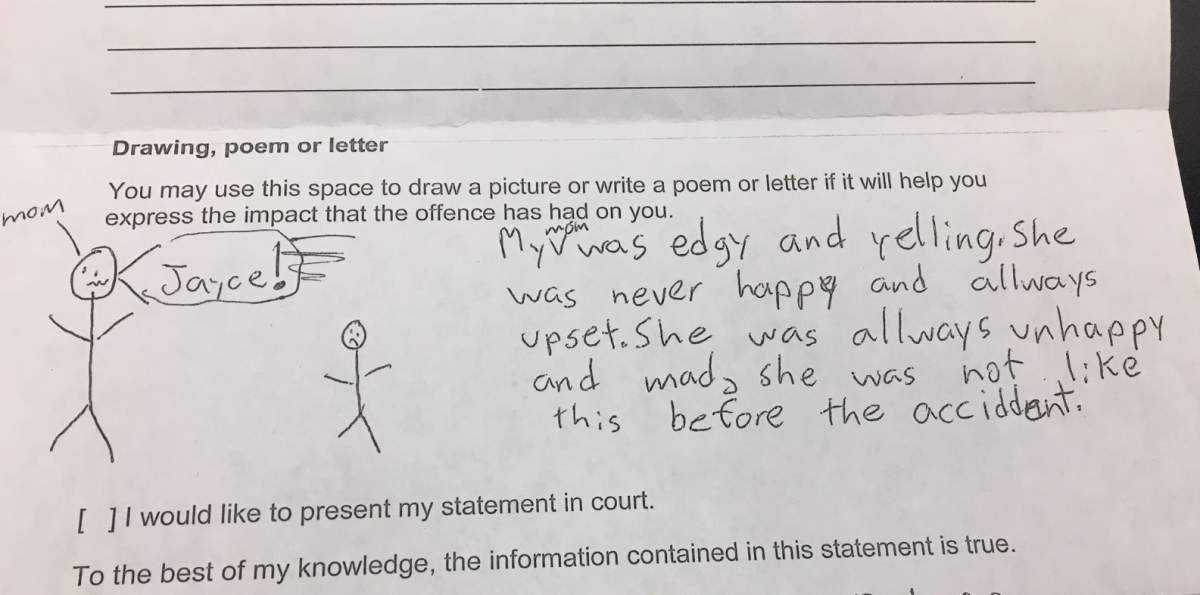 Drawing, poem or letter
You may use this space to draw a picture or write a poem or letter if it will help you
express the impact that the offence has had on you.
mom
Jayce!
mom
My was edgy and yelling. She
was never happy and allways
upset. She was allways unhappy
and mad, she was not like
this before the acciddent.
[ ] I would like to present my statement in court.
To the best of my knowledge, the information contained in this statement is true.